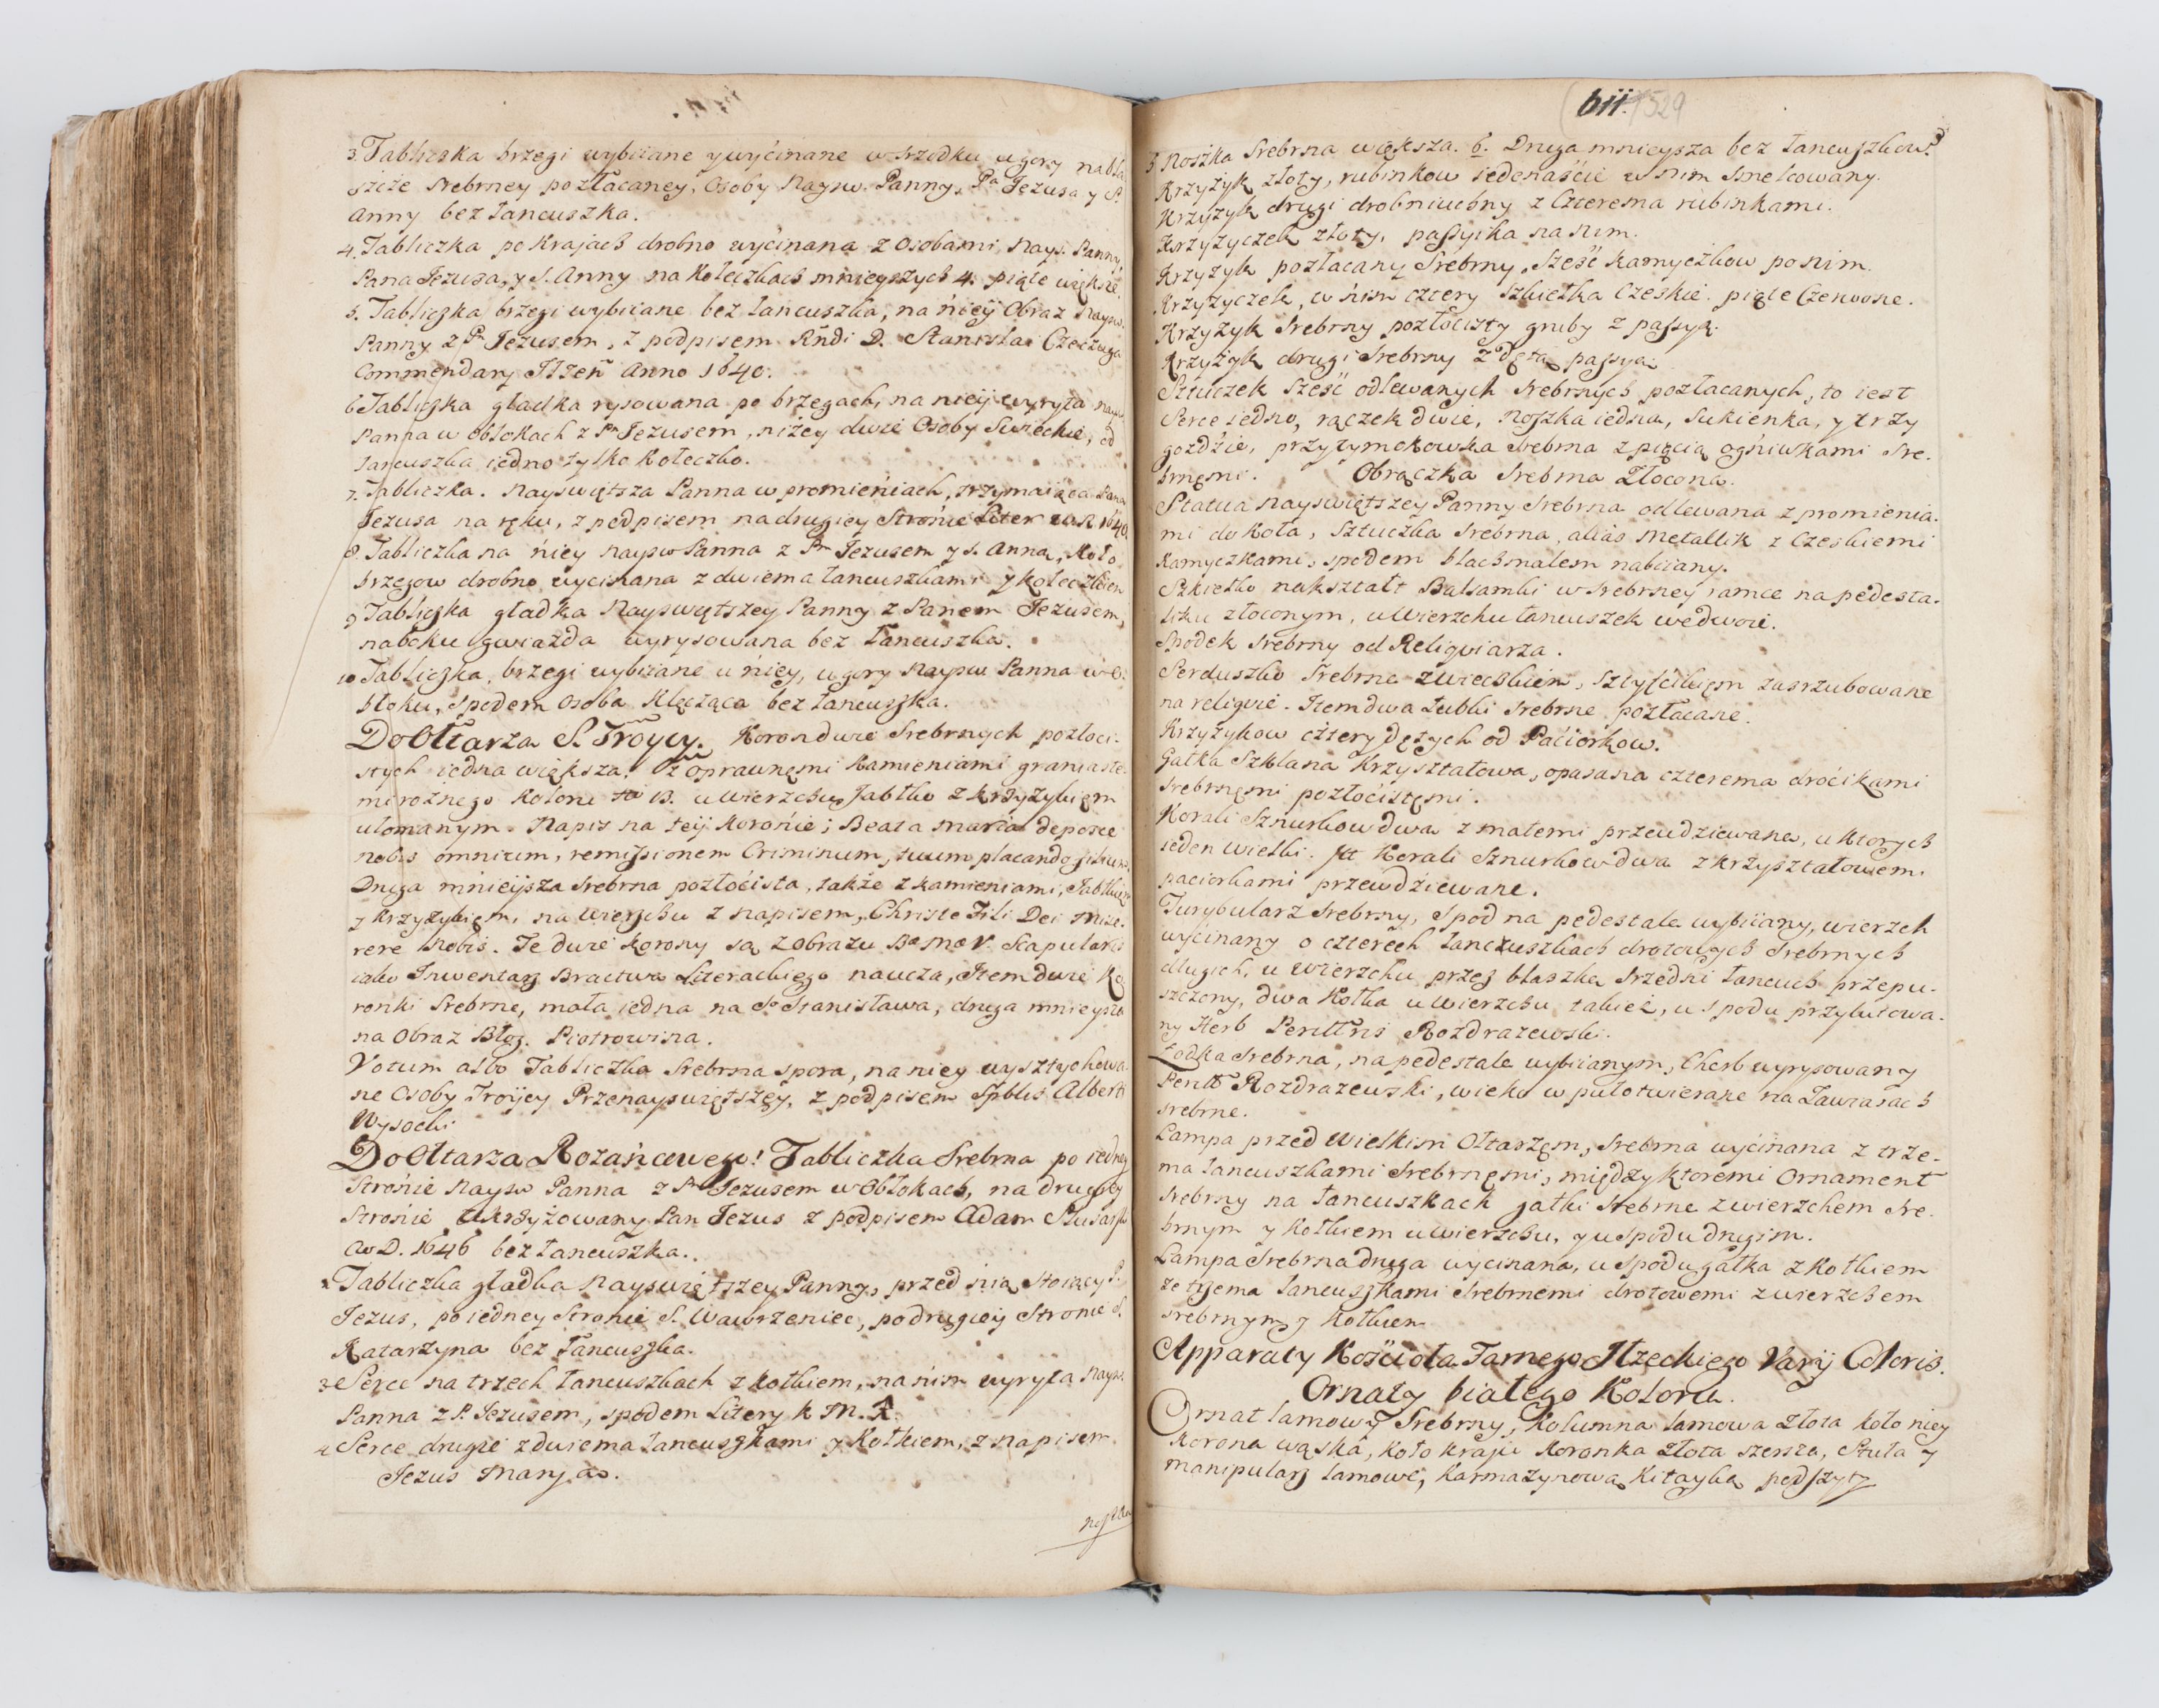 3. Tabliczka brzegi wybiiane y wycinane w srzodku u gory na bla
szcze srebrney pozłacaney, Osoby Nayśw. Panny, Pa Jezusa y S.
Anny bez łancuszka.
4. Tabliczka po Krajach drobno wycinana z Osobami Nayś. Panny,
Pana Jezusa, y S. Anny na Kołeczkach mnieyszych 4. piąte większe.
5. Tabliczka brzegi wybiiane bez łancuszka, na niey Obraz Nayśw.
Panny z Pm Jezusem, z podpisem Rndi D. Stanislai Czeczuga
Commendarij Ilżen Anno 1640.
6 Tabliczka gładka rysowana po brzegach, na niey wyryta Nayś
Panna w obłokach z Pm Jezusem, niżey dwie Osoby Swieckie, od
łancuszka iedno tylko Kołeczko.
7. Tabliczka. Nayswiętsza Panna w promieniach, trzymaiąca Pana
Jezusa na ręku, z podpisem na drugiey Stronie Liter 1640
8. Tabliczka na niey Nayśw Panna z Pm Jezusem y S. Anna, Koło
brzegow drobno wycinana z dwiema łancuszkami y kołeczkiem
9 Tabliczka gładka Nayswiętszey Panny z Panem Jezusem,
na boku gwiazda wyrysowana bez łancuszka.
10 Tabliczka, brzegi wybiiane u niey, u gory Nayśw Panna w O.
błoku, spodem Osoba Klęcząca bez łancuszka.
Do Ołtarza S. Troycy. Koron dwie Srebrnych pozłoci.
stych iedna większa, z oprawnęmi Kamieniami graniaste
mi rożnego Koloru 13. u Wierzchu Jabłko z krzyżykięm
ułomanym. Napis na teÿ Koronie; Beata Maria deposce
nobis omnium, remissionem Criminum, tuum placando filium.
Druga mnieysza Srebrna pozłocista, także z kamieniami, Jabłkiem
y krzyżykięm, na Wierzchu z napisem, Christe Fili Dei Mise.
rere Nobis. Te dwie Korony są z Obrazu Bæ Mæ V. Scapularis
iako Inwentarz Bractwa Literackiego naucza, Item dwie Ko
ronki Srebrne, mała iedna na So Stanisława, druga mnieysza
na Obraz Błog. Piotrowina.
Votum albo Tabliczka Srebrna spora, na niey wysztychowa
ne Osoby Troÿcy Przenayswiętszęy, z podpisem Spblis Alberti
Wysocki
Do Ołtarza Rożańcowego! Tabliczka Srebrna po iedney
Stronie Nayśw Panna z Pm Jezusem w Obłokach, na drugiey
Stronie Ukrzyżowany Pan Jezus z podpisem Adam Slusarski
Ao D. 1646 bez łancuszka.
2 Tabliczka gładka Nayswiętszey Panny, przed nią Stoiący P.
Jezus, po iedney Stronie S. Wawrzeniec, po drugiey Stronie S.
Katarzyna bez łancuszka.
3 Serce na trzech łancuszkach z kołkiem, na nim wyryta Nayśw.
Panna z P. Jezusem, spodem Litery K M. R.
4 Serce drugie z dwiema łancuszkami y Kołkiem, z napisem
Jezus Marya.
Noszka
611. 529
5 Noszka Srebrna większa. 6. Druga mnieysza bez łancuszkow.
Krzyżyk złoty, rubinkow iedenaście w nim Smelcowany.
Krzyżyk drugi drobniuchny z Czterema rubinkami.
Krzyżyczek złoty, passyika na nim.
Krzyżyk pozłacany Srebrny, Sześć kamyczkow po nim.
Krzyżyczek, w nim cztery Szkiełka Czeskie. piąte Czerwone.
Krzyżyk Srebrny pozłocisty gruby z passyą.
Krzyżyk drugi Srebrny z dętą passyą.
Sztuczek Sześć odlewanych Srebrnych pozłacanych, to iest
Serce iedno, rączek dwie, Noszka iedna, Sukienka, y trzy
gozdzie, przy tym okowka Srebrna z pięcią ogniwkami Sre.
brnęmi. Obrączka Srebrna Złocona.
Statua Nayswiętszey Panny Srebrna odlewana z promienia.
mi do Koła, Sztuczka Srebrna, alias Metallik z Czeskiemi
Kamyczkami, spodem blachmalem nabiiany.
Szkiełko nakształt Balsamki w Srebrney ramce na pedesta.
liku złoconym, u Wierzchu łancuszek we dwoie.
Spodek Srebrny od Religviarza.
Serduszko Srebrne z wieczkiem, Sztyfcikięm zasrzubowane
na religvie. Item dwa Łubki Srebrne pozłacane.
Krzyżykow cztery dętych od Paciorkow.
Gałka Szklana Krzyształowa, opasana czterema drócikami
srebrnęmi pozłocistęmi.
Korali Sznurkow dwa z małemi przewdziewane, u ktorych
ieden wielki. Itt Korali Sznurkow dwa z krzyształowemi
paciorkami przewdziewane.
Turybularz Srebrny, Spod na pedestale wybiiany, wierzch
wycinany o czterech łanczuszkach drotowych Srebrnych
długich, u Wierzchu przez blaszkę srzedni łancuch przepu.
szczony, dwa Kołka u Wierzchu takież, u spodu przylutowa.
ny Herb Perilltris Rozdrazewski.
Łodka Srebrna, na pedestale wybiianym, Cherb wyrysowany
Perillt Rozdrazewski, wieko w puł otwierane na Zawiasach
srebrne.
Lampa przed Wielkim Ołtarzęm, Srebrna wycinana z trze-
ma łancuszkami Srebrnęmi, między ktoremi Ornament
srebrny na łancuszkach gałki Srebrne z wierzchem Sre.
brnym y Kołkiem u wierzchu, y u spodu drugim.
Lampa Srebrna druga wycinana, u spodu gałka z Kołkiem
ze trzema łancuszkami Srebrnemi drotowemi z wierzchem
srebrnym y Kołkiem
Apparaty Kościoła Farnego Iłżeckiego Varij Coloris.
Ornaty białego Koloru.
Ornat lamowy Srebrny, Kolumna lamowa Złota koło niey
Korona wąska, koło kraju Koronka Złota szersza, Stuła y
manipularz lamowe, Karmazynową Kitayką podszyty